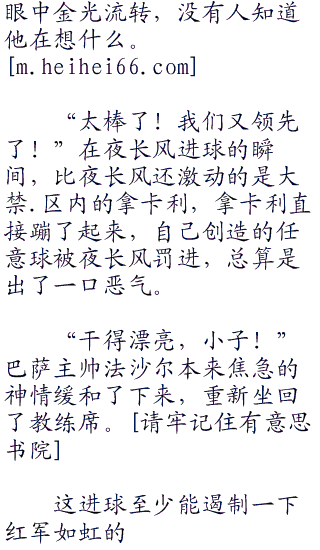 眼中金光流转，没有人知道
他在想什么。
[m.heihei66.com]
“太棒了！我们又领先
了！”在夜长风进球的瞬
间，比夜长风还激动的是大
禁.区内的拿卡利，拿卡利直
接蹦了起来，自己创造的任
意球被夜长风罚进，总算是
出了一口恶气。
“干得漂亮，小子！”
巴萨主帅法沙尔本来焦急的
神情缓和了下来，重新坐回
了教练席。[请牢记住有意思
书院]
这进球至少能遏制一下
红军如虹的